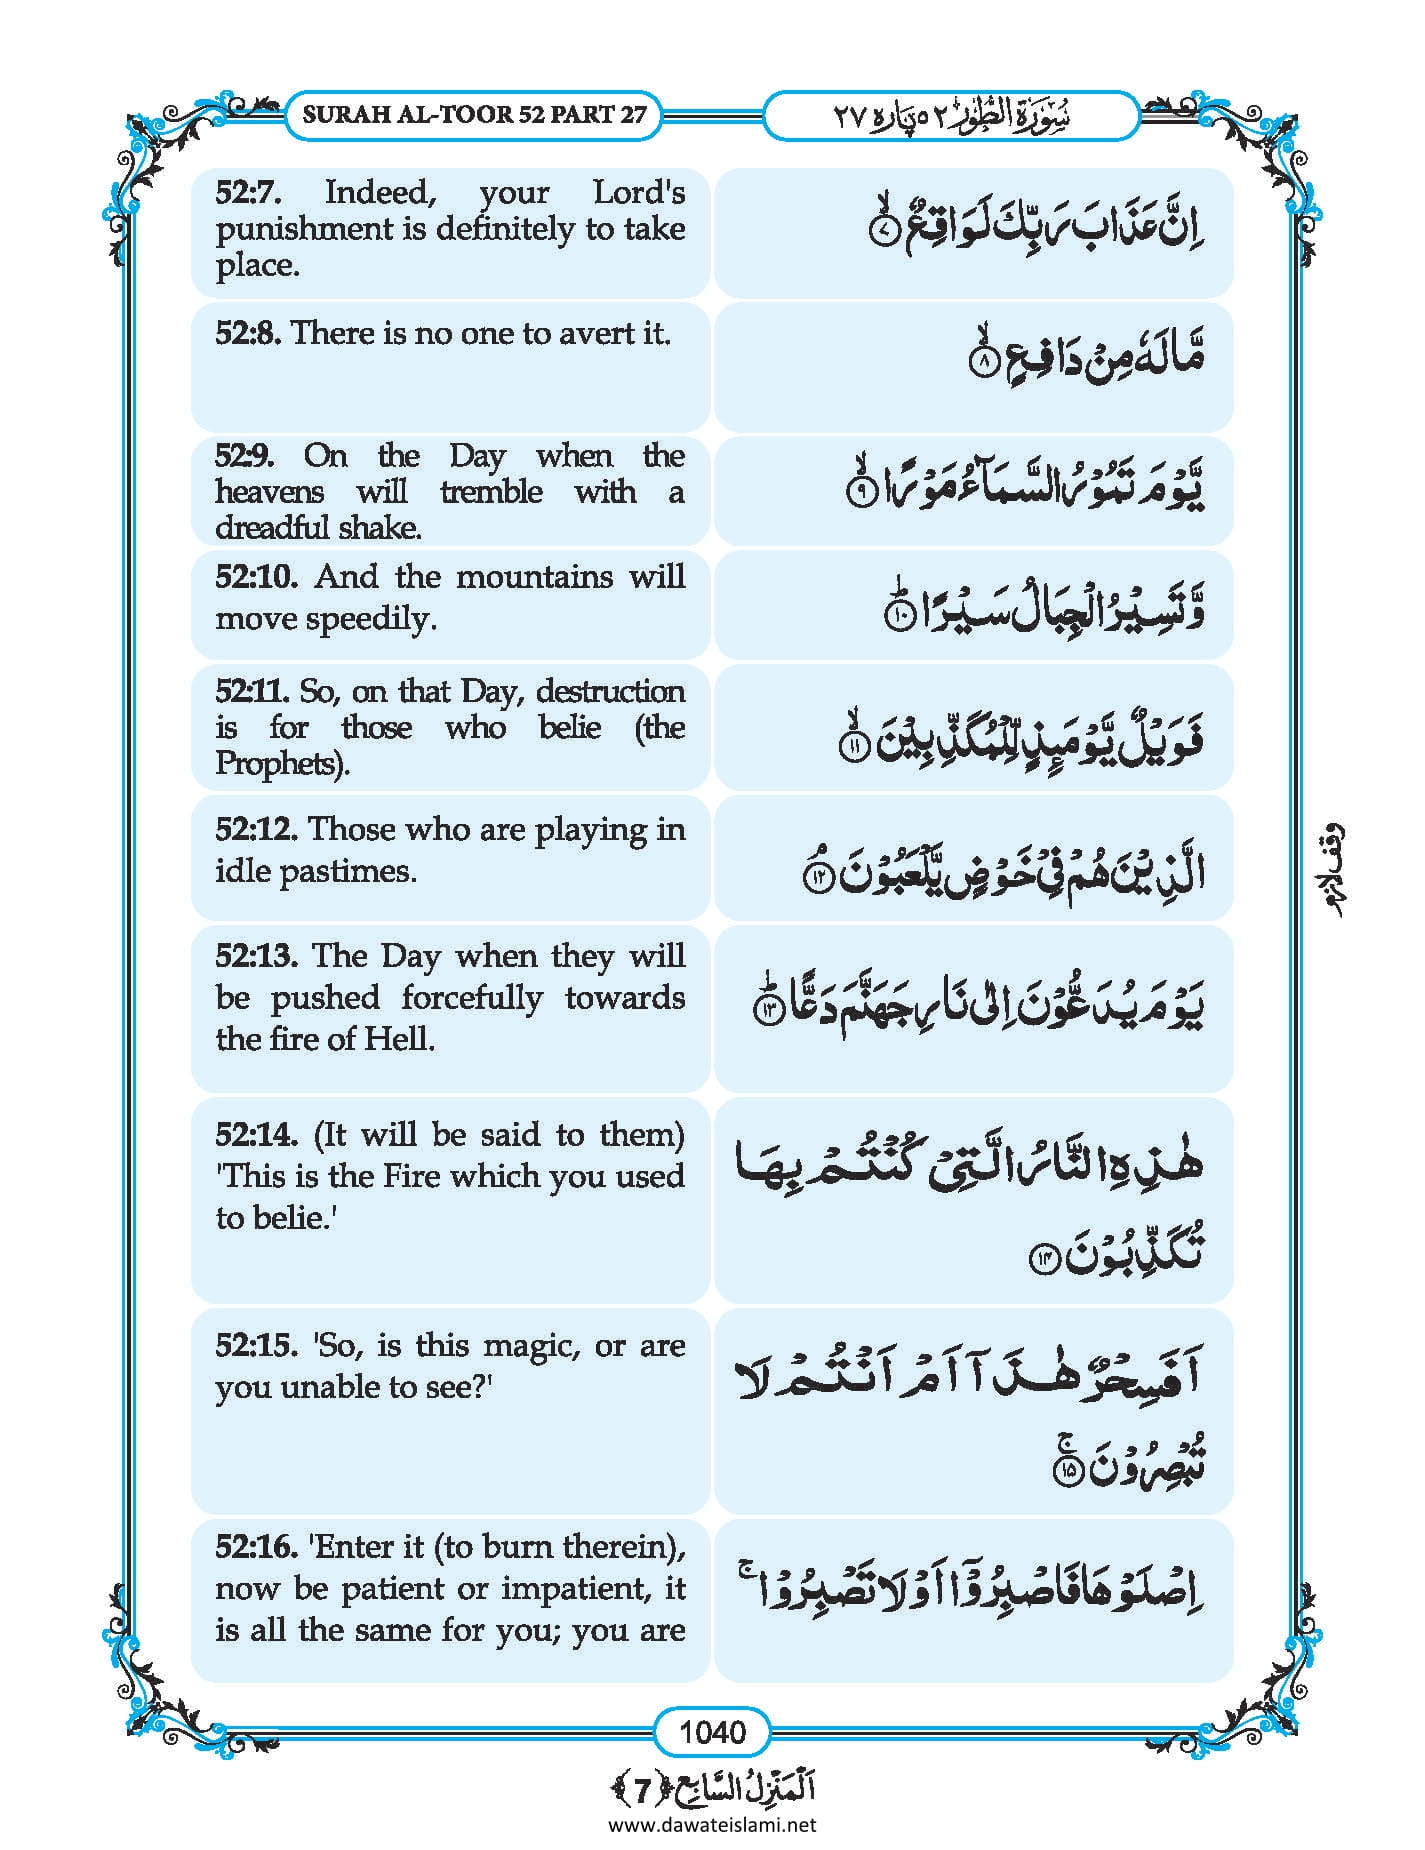 SURAH AL-TOOR 52 PART 27
سُوۡرَۃُ الطُّوۡر ٥٢ پارہ ٢٧
52:7. Indeed, your Lord's
punishment is definitely to take
place.
اِنَّ عَذَابَ رَبِّكَ لَوَاقِعٌ ۙ﴿۷﴾
52:8. There is no one to avert it.
مَّا لَهٗ مِنۡ دَافِعٍ ۙ﴿۸﴾
52:9. On the Day when the
heavens will tremble with a
dreadful shake.
یَّوۡمَ تَمُوۡرُ السَّمَآءُ مَوۡرًا ۙ﴿۹﴾
52:10. And the mountains will
move speedily.
وَّ تَسِیۡرُ الۡجِبَالُ سَیۡرًا ؕ﴿۱۰﴾
52:11. So, on that Day, destruction
is for those who belie (the
Prophets).
فَوَیۡلٌ یَّوۡمَئِذٍ لِّلۡمُكَذِّبِیۡنَ ۙ﴿۱۱﴾
52:12. Those who are playing in
idle pastimes.
الَّذِیۡنَ هُمۡ فِیۡ خَوۡضٍ یَّلۡعَبُوۡنَ ۘ﴿۱۲﴾
وقف لازم
52:13. The Day when they will
be pushed forcefully towards
the fire of Hell.
یَوۡمَ یُدَعُّوۡنَ اِلٰی نَارِ جَهَنَّمَ دَعًّا ؕ﴿۱۳﴾
52:14. (It will be said to them)
'This is the Fire which you used
to belie.'
هٰذِهِ النَّارُ الَّتِیۡ كُنۡتُمۡ بِهَا
تُكَذِّبُوۡنَ ﴿۱۴﴾
52:15. 'So, is this magic, or are
you unable to see?'
اَفَسِحۡرٌ هٰذَاۤ اَمۡ اَنۡتُمۡ لَا
تُبۡصِرُوۡنَ ۚ﴿۱۵﴾
52:16. 'Enter it (to burn therein),
now be patient or impatient, it
is all the same for you; you are
اِصۡلَوۡهَا فَاصۡبِرُوۡۤا اَوۡ لَا تَصۡبِرُوۡا ۚ
1040
اَلۡمَنۡزِلُ السَّابِع ﴿7﴾
www.dawateislami.net